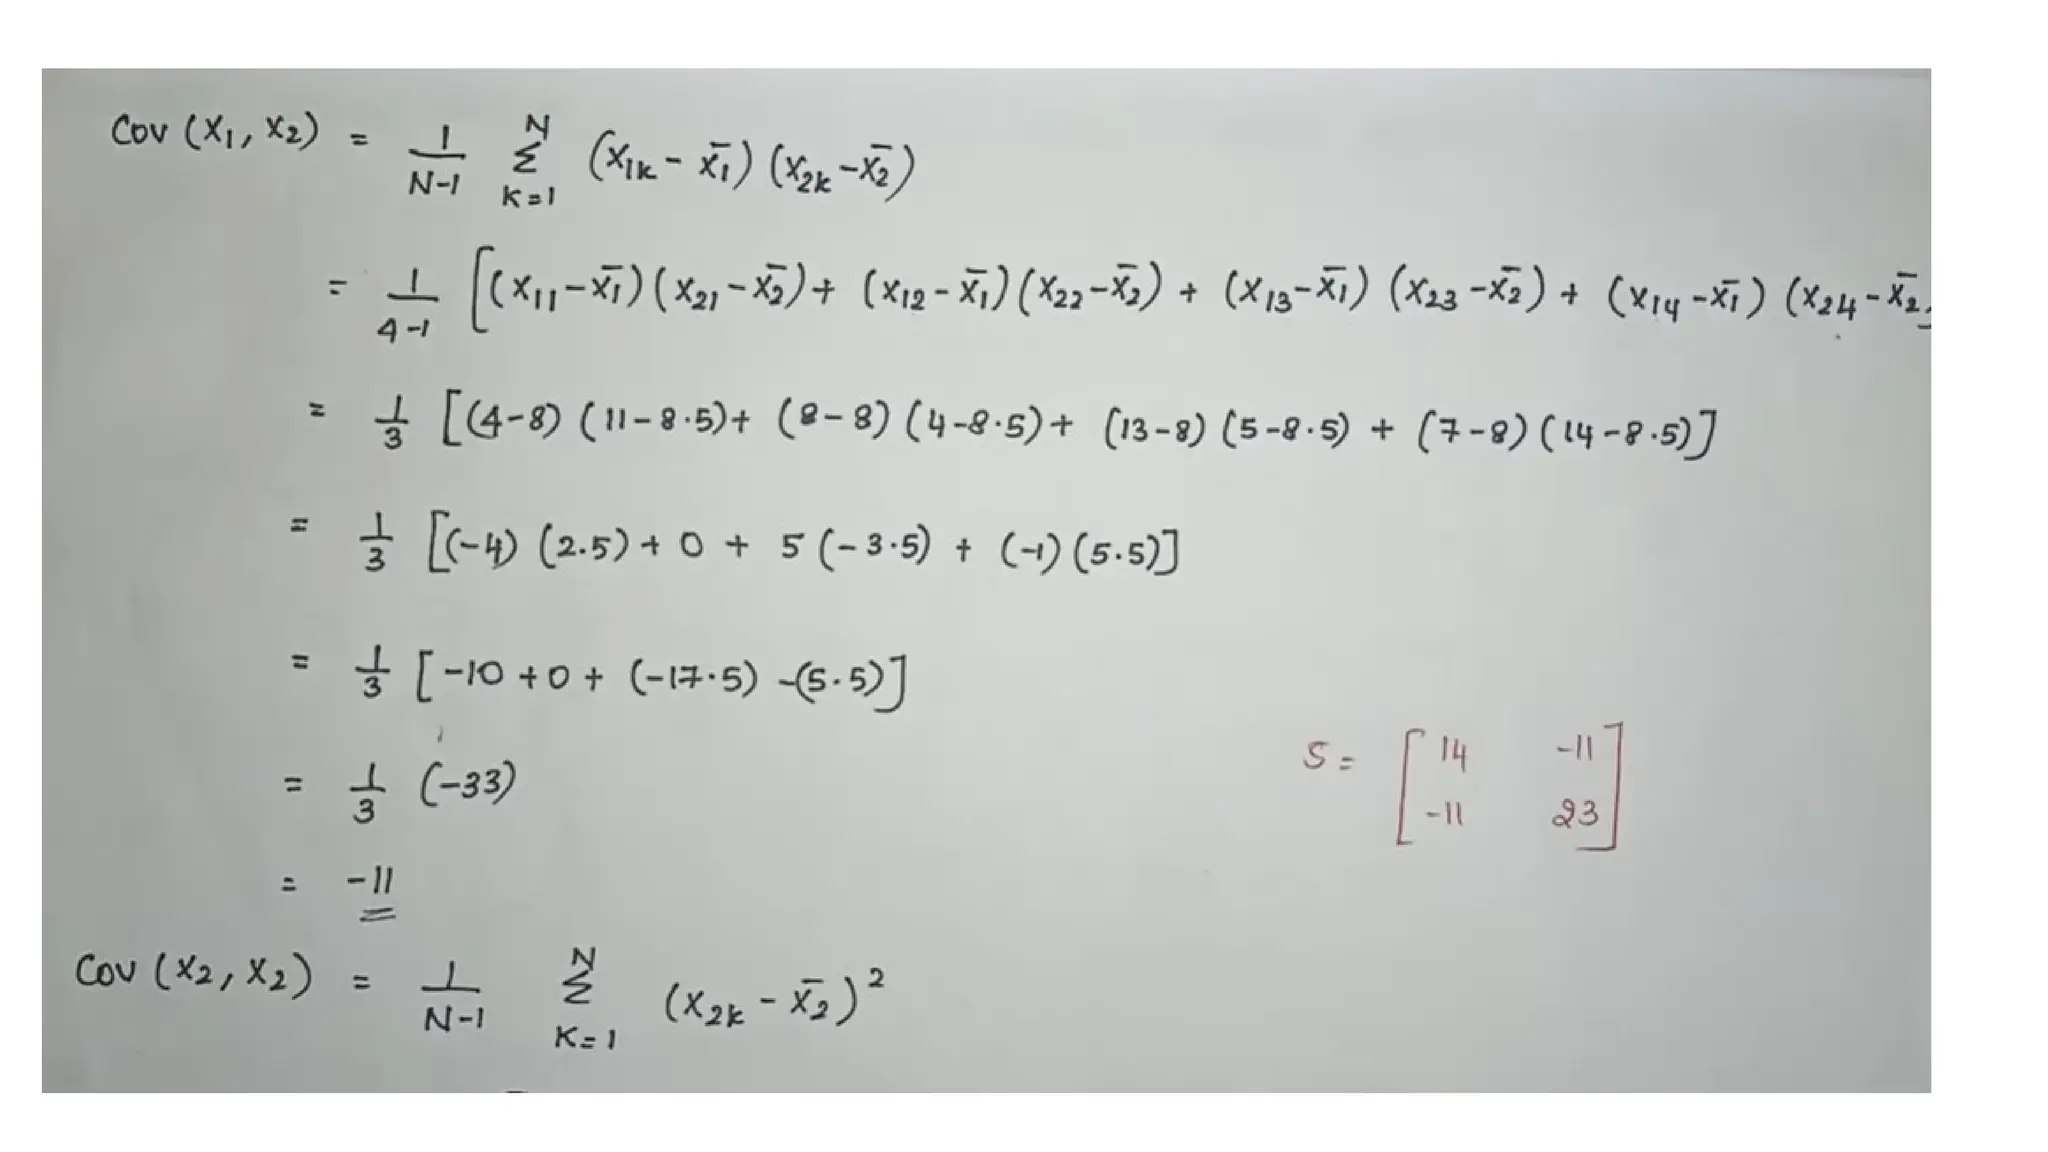 Cov (X₁, X₂) = 1/(N-1) Σ_{K=1}^{N} (X₁ₖ - X̄₁) (X₂ₖ - X̄₂)
= 1/(4-1) [(X₁₁ - X̄₁) (X₂₁ - X̄₂) + (X₁₂ - X̄₁) (X₂₂ - X̄₂) + (X₁₃ - X̄₁) (X₂₃ - X̄₂) + (X₁₄ - X̄₁) (X₂₄ - X̄₂
= 1/3 [(4-8) (11-8.5) + (8-8) (4-8.5) + (13-8) (5-8.5) + (7-8) (14-8.5)]
= 1/3 [(-4) (2.5) + 0 + 5 (-3.5) + (-1) (5.5)]
= 1/3 [-10 + 0 + (-17.5) -(5.5)]
= 1/3 (-33)
= -11
S = [14 -11
-11 23]
Cov (X₂, X₂) = 1/(N-1) Σ_{K=1}^{N} (X₂ₖ - X̄₂)²